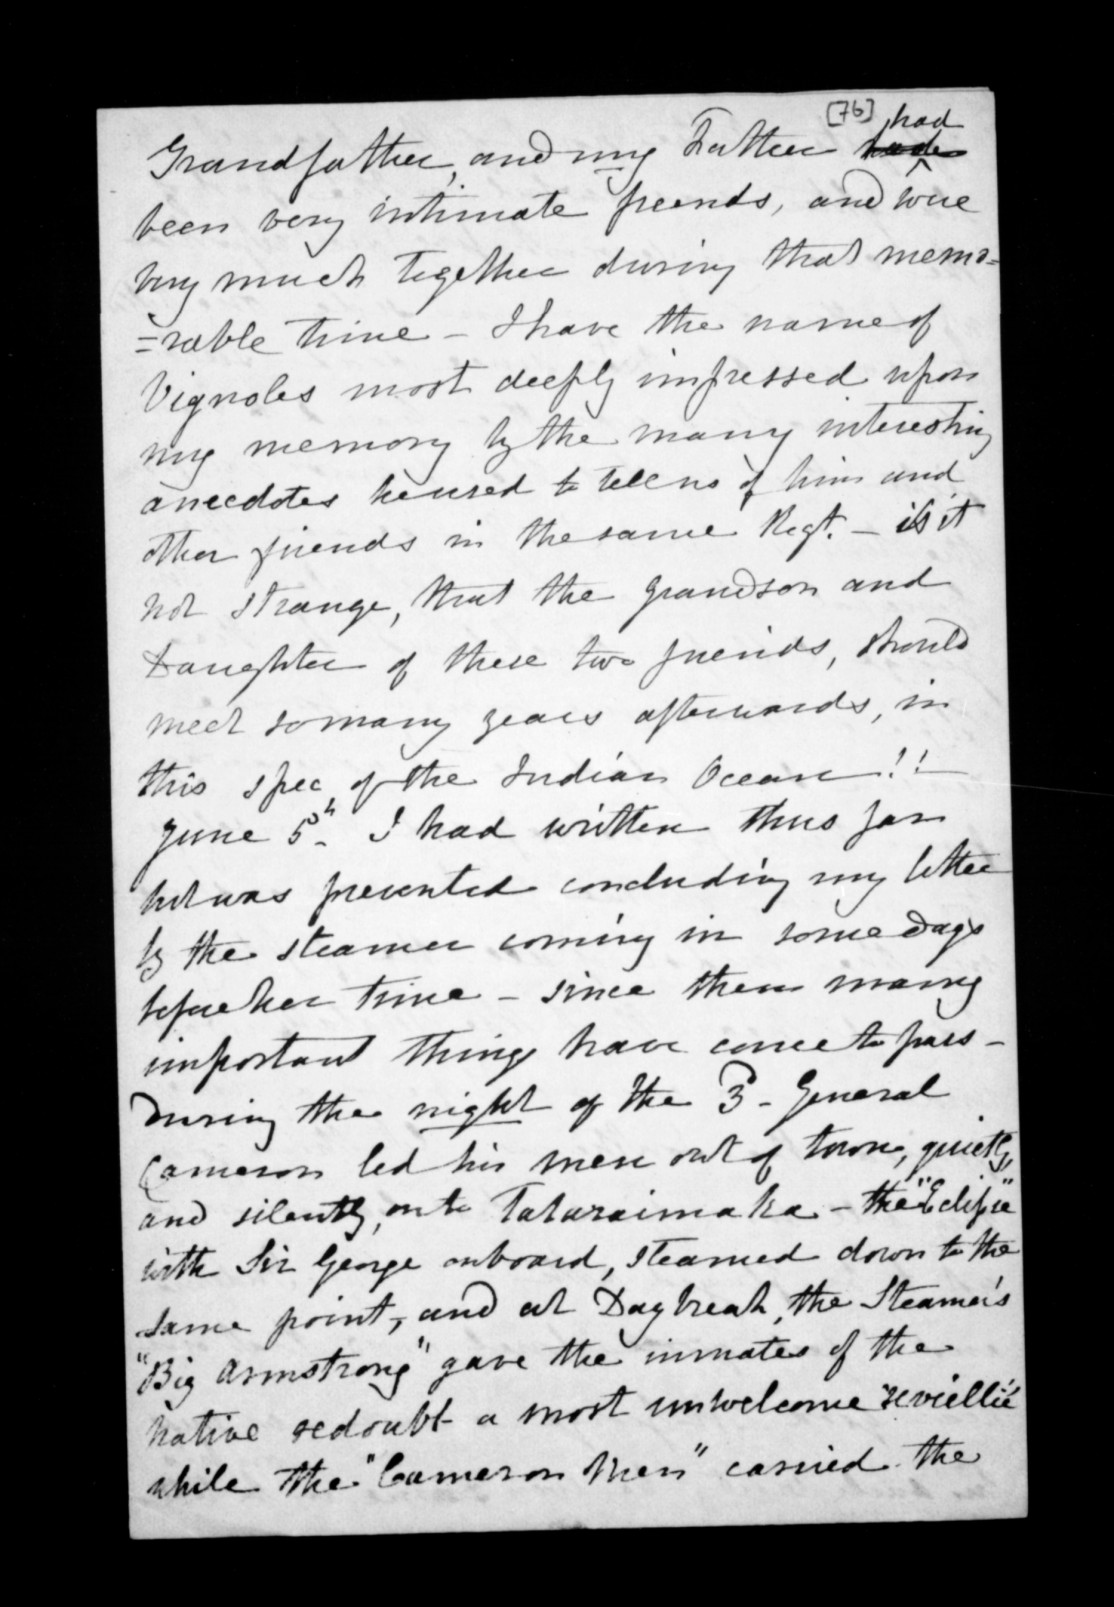 [76]
Grandfather, and my Father had
been very intimate friends, and were
very much together during that memo=
=rable time - I have the name of
Vignoles most deeply impressed upon
my memory by the many interesting
anecdotes he used to tell us of him and
other friends in the same Regt. - is it
not strange, that the grandson and
Daughter of these two friends, should
meet so many years afterwards, in
this spec, of the Indian Ocean!!
June 5th. I had written thus far
but was prevented concluding my letter
by the steamer coming in some days
before her time - since then many
important things have come to pass -
During the night of the 3d - General
Cameron led his men out of town, quietly,
and silently, on to Tataraimaka - the "Eclipse"
with Sir George on board, steamed down to the
same point, and at Daybreak, the Steamer's
"Big Armstrong" gave the inmates of the
native redoubt a most unwelcome "reviellié"
while the "Cameron Men" carried the